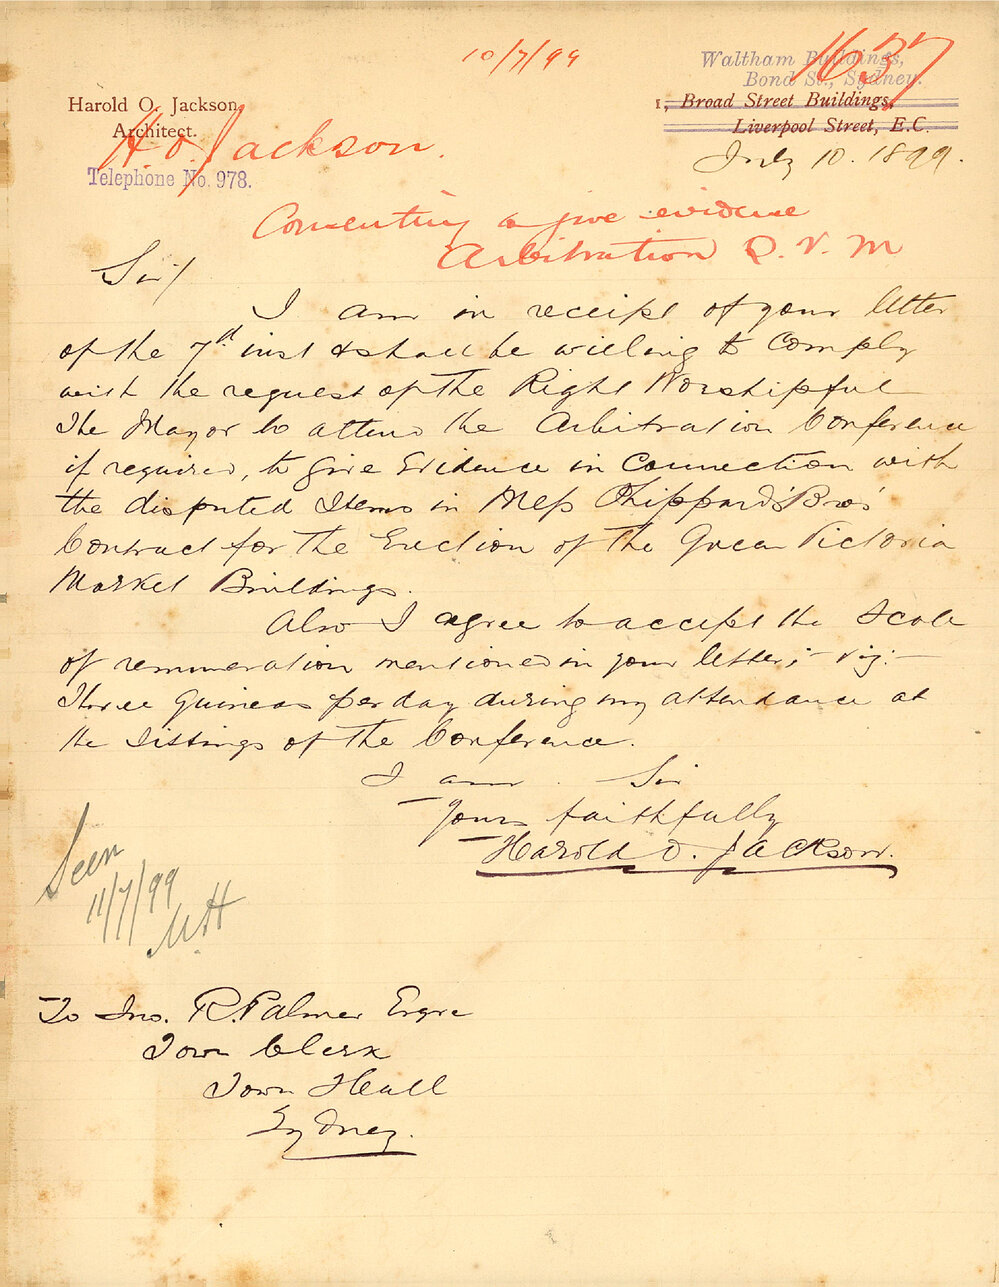 10/7/99
1637
Waltham Buildings,
Bond St., Sydney.
Harold O. Jackson,
Architect.
1, Broad Street Buildings,
Liverpool Street, E.C.
H. O. Jackson.
Telephone No. 978.
July 10. 1899.
Consenting to give evidence
Arbitration Q. V. M
Sir/
I am in receipt of your letter
of the 7th inst & shall be willing to comply
with the request of the Right Worshipful
The Mayor to attend the Arbitration Conference
if required, to give Evidence in Connection with
the disputed Items in Mess Phippard Bros'
Contract for the Erection of the Queen Victoria
Market Buildings.
Also I agree to accept the Scale
of remuneration mentioned in your letter;- viz:-
Three Guineas per day during my attendance at
the sittings of the Conference.
I am Sir
Yours faithfully
Harold O. Jackson.
Seen
11/7/99
To Jno. R. Palmer Esqre
Town Clerk
Town Hall
Sydney.